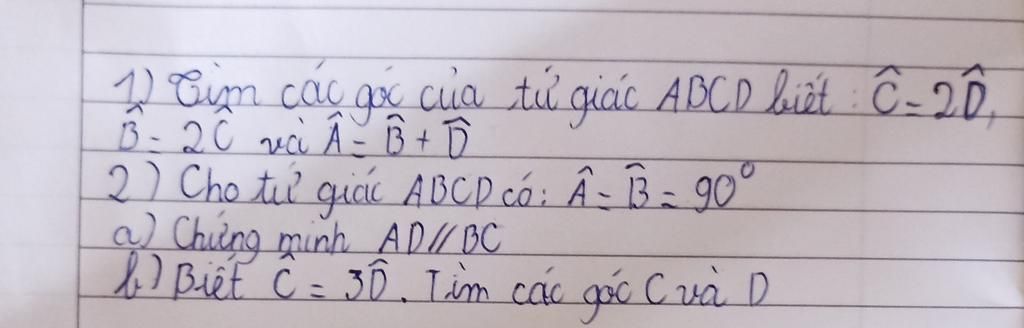 1) Tìm các góc của tứ giác ABCD biết : Ĉ = 2D̂,
B̂ = 2Ĉ và Â = B̂ + D̂
2) Cho tứ giác ABCD có: Â = B̂ = 90°
a) Chứng minh AD // BC
b) Biết Ĉ = 3D̂. Tìm các góc C và D